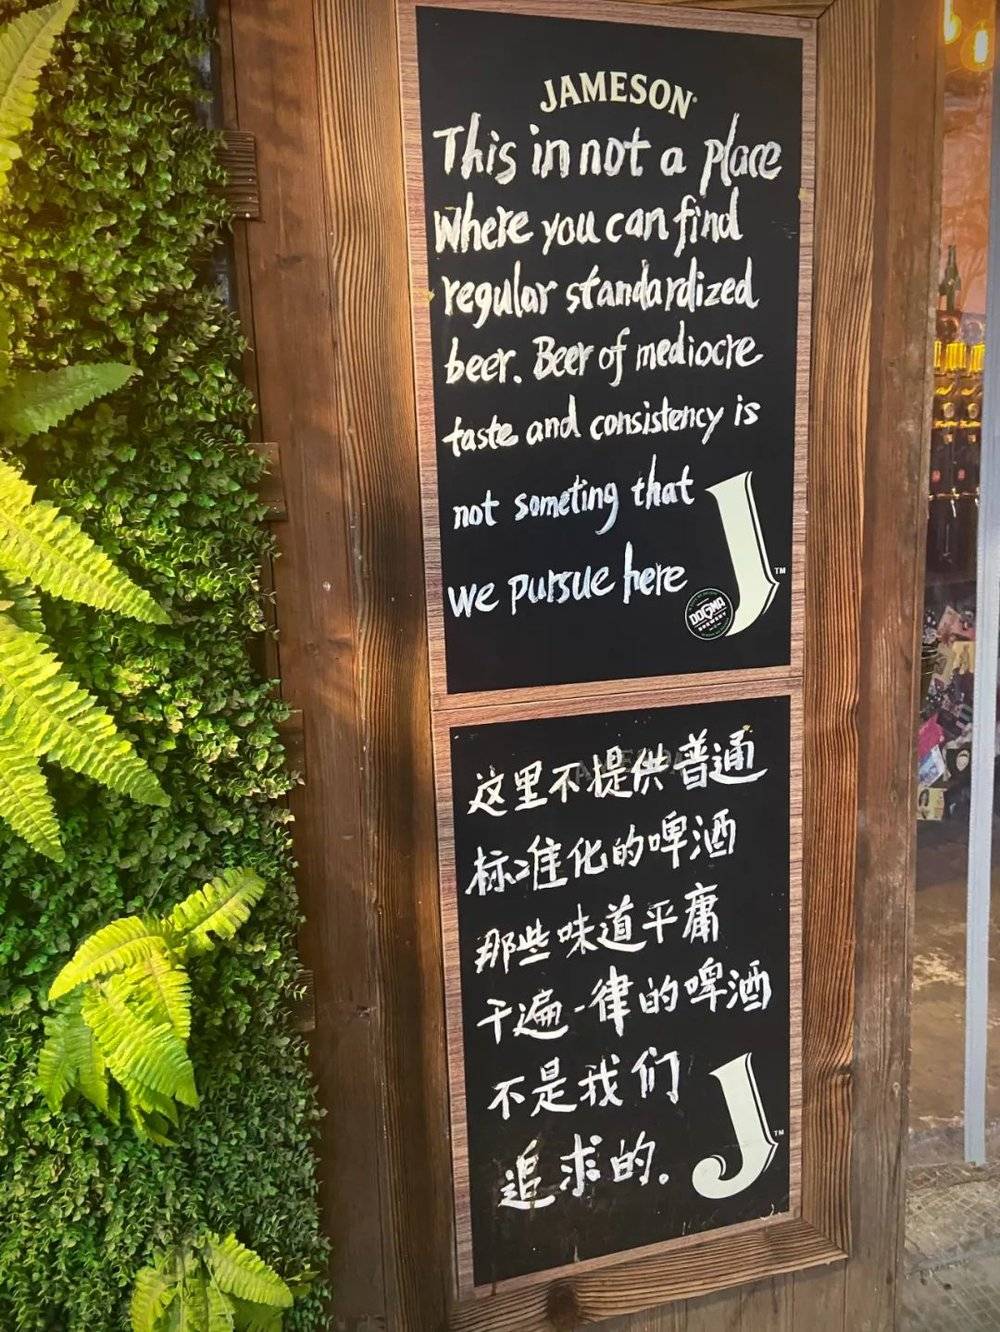 JAMESON
This in not a place
where you can find
regular standardized
beer. Beer of mediocre
taste and consistency is
not someting that
we pursue here
J™
DOGMA
BREWERY
这里不提供普通
标准化的啤酒
那些味道平庸
千遍一律的啤酒
不是我们
追求的。
J™